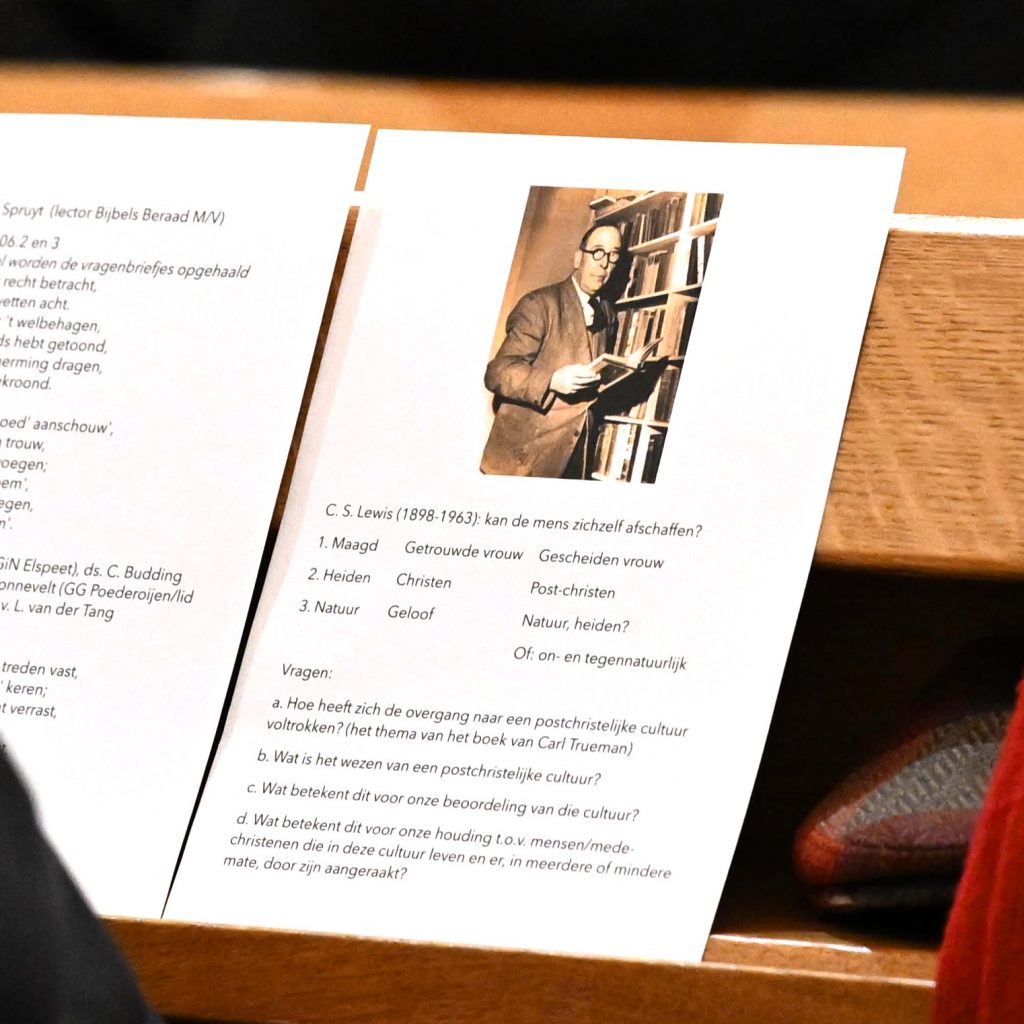 Spruyt (lector Bijbels Beraad M/V)
06.2 en 3
worden de vragenbriefjes opgehaald
recht betracht,
wetten acht.
't welbehagen,
hebt getoond,
dragen,
oed' aanschouw',
trouw,
GiN Elspeet), ds. C. Budding
(GG Poederoijen/lid
v. L. van der Tang
treden vast,
keren;
verrast,
C. S. Lewis (1898-1963): kan de mens zichzelf afschaffen?
1. Maagd Getrouwde vrouw Gescheiden vrouw
2. Heiden Christen Post-christen
3. Natuur Geloof Natuur, heiden?
Of: on- en tegennatuurlijk
Vragen:
a. Hoe heeft zich de overgang naar een postchristelijke cultuur
voltrokken? (het thema van het boek van Carl Trueman)
b. Wat is het wezen van een postchristelijke cultuur?
c. Wat betekent dit voor onze beoordeling van die cultuur?
d. Wat betekent dit voor onze houding t.o.v. mensen/mede-
christenen die in deze cultuur leven en er, in meerdere of mindere
mate, door zijn aangeraakt?